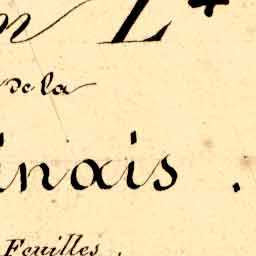 n L
de la
inais .
Feuilles .